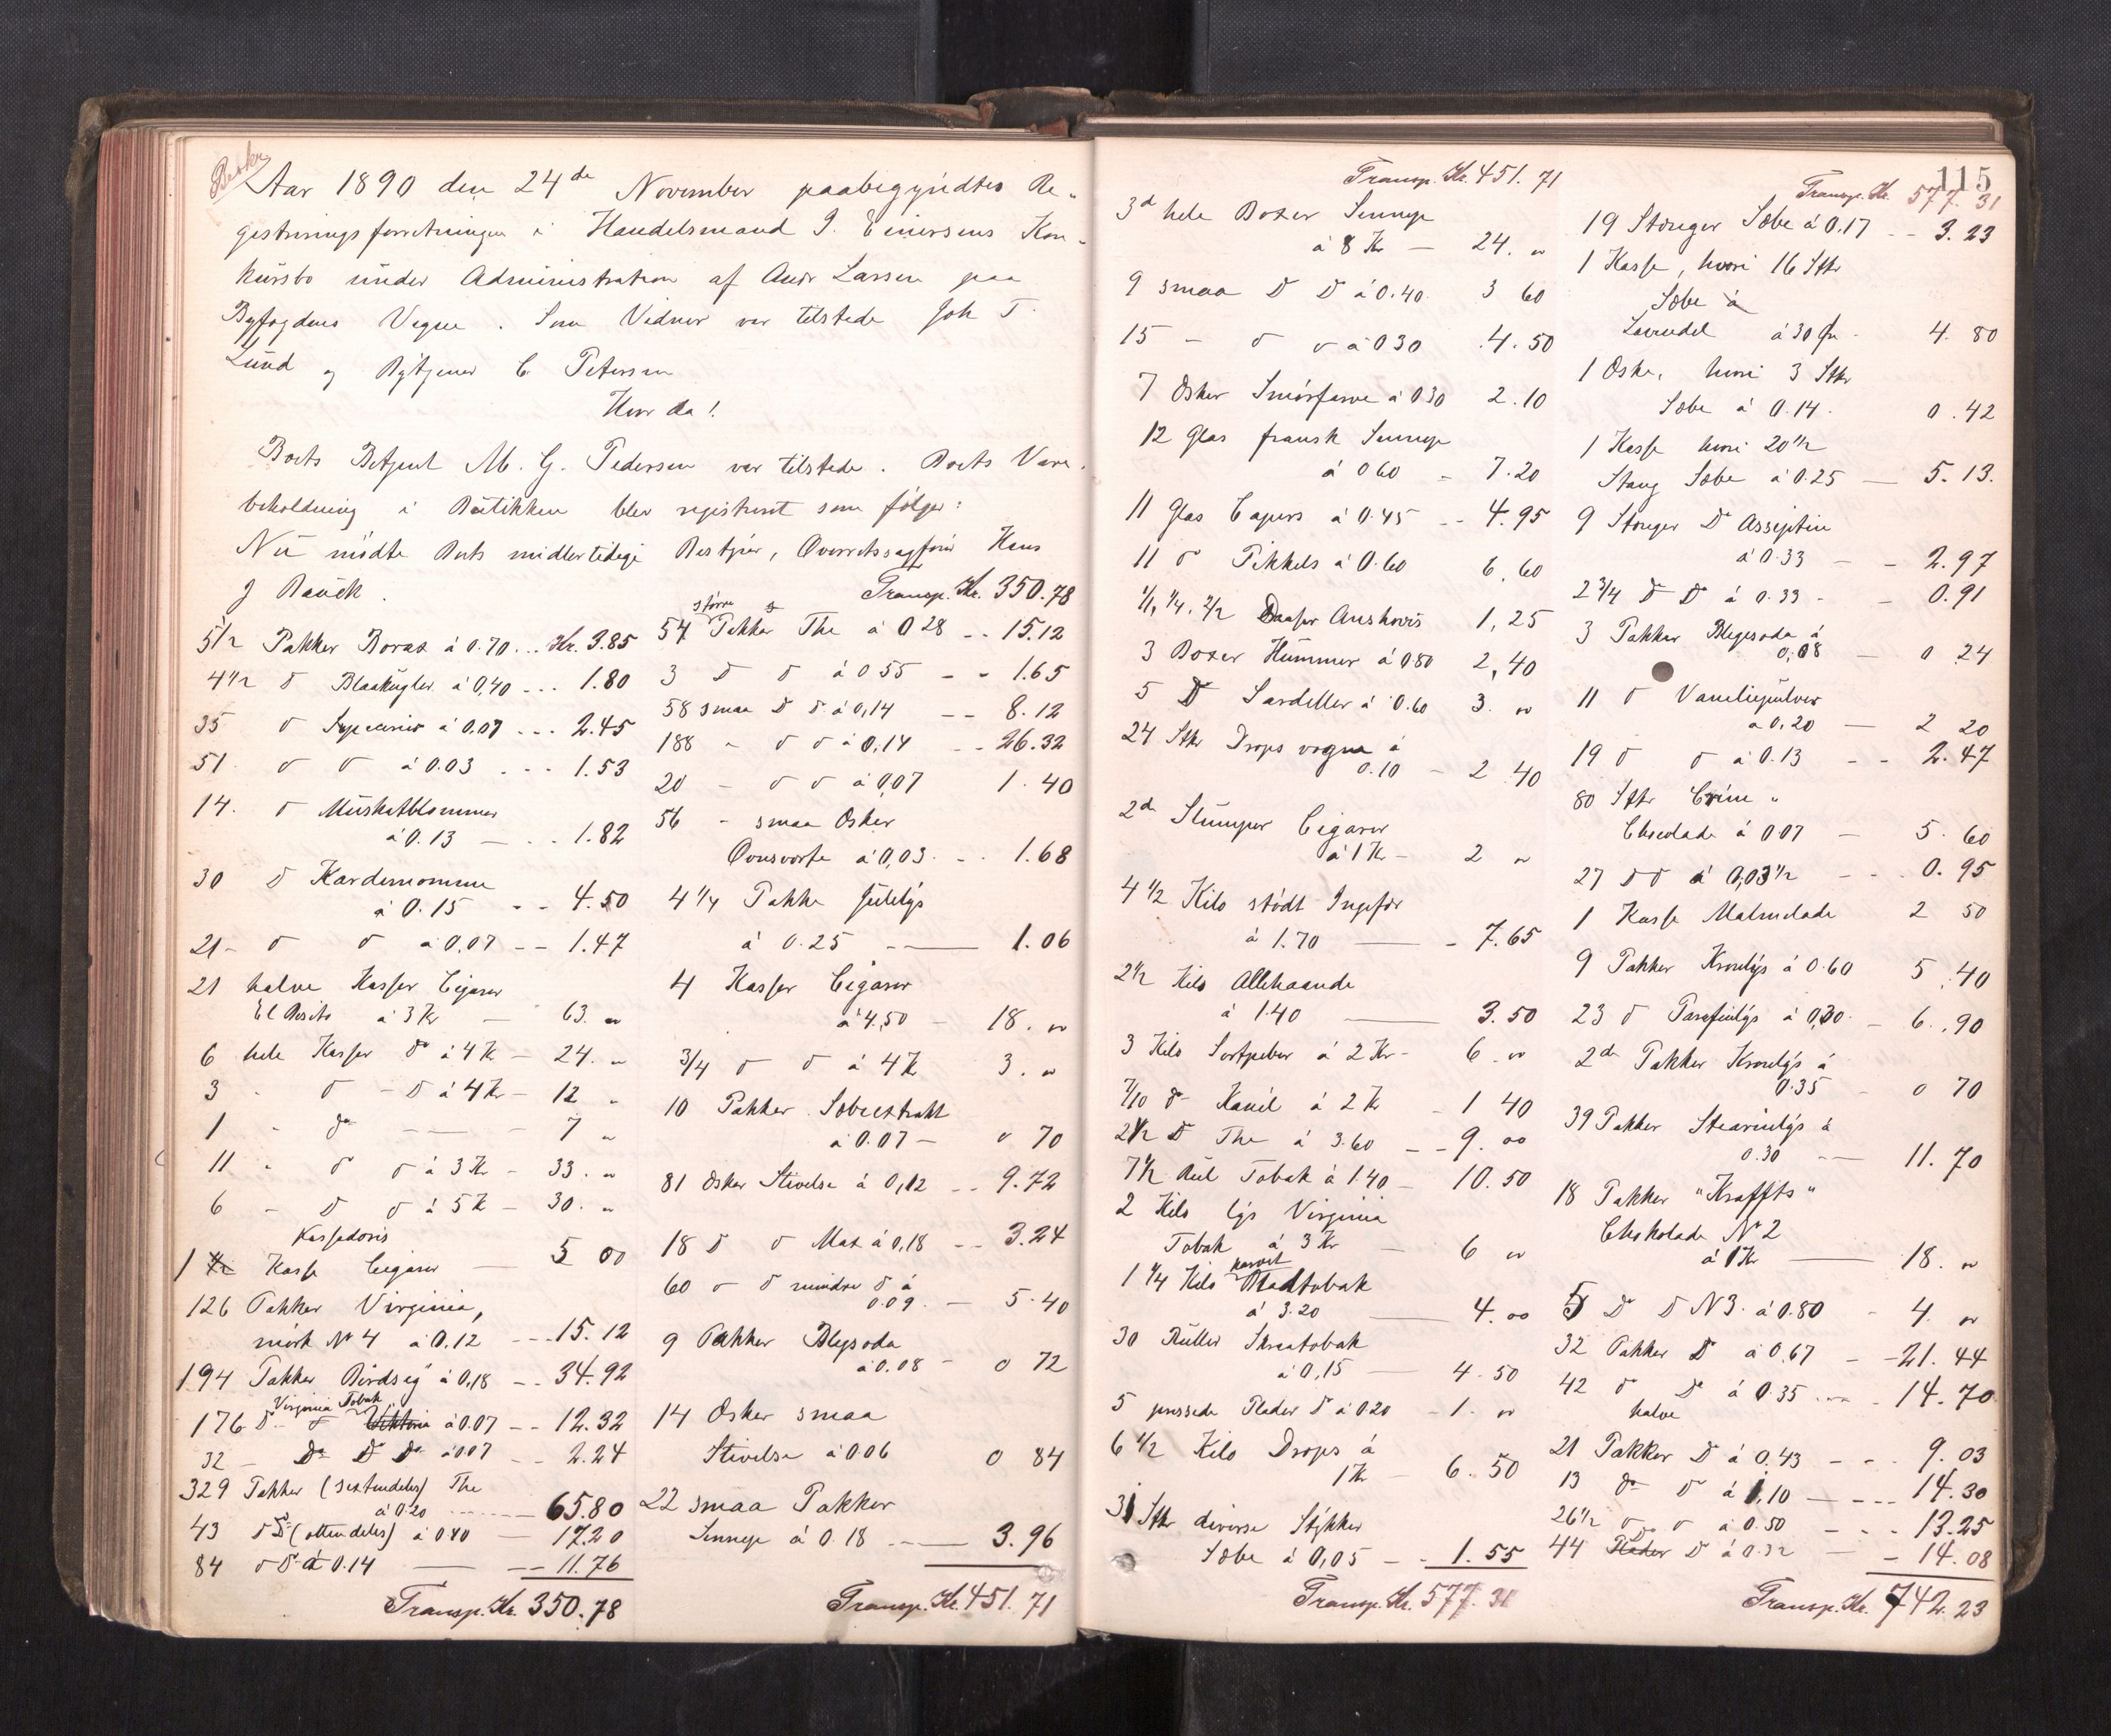 Beskr
Aar 1890 den 24de November paabegyndtes Re-
gistreringsforretningen i Handelsmand J. Einersens Kon-
kursbo under Administration af Andr Larsen paa
Byfogdens Vegne. Som Vidner var tilstede Joh T.
Lund og C Petersen
Hvor da!
Boets Betjent M. G. Pedersen var tilstede. Boets Vare-
beholdning i Butikken blev registreret som følger:
Nu mødte Boets midlertidige Bestyrer, Overretssagfører Hans
J Bauck.
5 1/2 Pakker Borax á 0.70 ... Kr. 3.85
4 1/2 d Blaakugler á 0,40 --- 1.80
35 d á 0,07 --- 2.45
51 d d á 0.03 --- 1.53
14. d Muskatblommer
á 0.13 — 1.82
30 d Kardemomme
á 0.15 -- 4.50
21 - d d á 0,07 -- 1.47
21 halve Kasser Cigarer
El á 3 Kr — 63. "
6 hele Kasser do á 4 K — 24. "
3 " d - d á 4 Kr — 12 "
1 " do — 7 "
11 " d d á 3 Kr - 33. "
6 - d d á 5 K - 30. "
Kassadoris
1 Kasse Cigarer — 5 00
126 Pakker Virginia,
mörk No 4 á 0.12 --- 15.12
194 Pakker "Birdseÿ" á 0,18 -- 34.92
Virginia Tobak
176 d - d Viktoria á 0.07 -- 12.32
32 - Do D Do á 0.07 -- 2.24
329 Pakker (sextendeles) The
á 0.20 ---- 65.80
43 d d (ottendeles) á 0.40 — 17.20
84 d d á 0.14 — -- 11.76
Transp. Kr. 350.78
Transp. Kr. 350.78
större
54 Pakker The á 0 28 -- 15.12
3 D d á 0 55 - - 1.65
58 smaa D d á 0,14 -- 8.12
188 " d d á 0,14 -- 26.32
20 - d d á 0,07 1.40
56 - smaa Esker
Ovnsværte á 0,03. - 1.68
4 1/4 Pakke Julelys
á 0.25 — 1.06
4 Kasser Cigarer
á 4,50 - 18. "
3/4 d d á 4 K 3. "
10 Pakker Sæbeextrakt
á 0.07 — " 70
81 Esker Stivelse á 0,12 -- 9.72
18 D d Max á 0,18 -- 3.24
60 d d mindre d á
0.09. — 5.40
9 Pakker Blegsoda
á 0.08 - 0 72
14 Esker smaa
Stivelse á 0 06 0 84
22 smaa Pakker
Sennep á 0.18 — 3.96
Transp. Kr. 451. 71
Transp. Kr. 451. 71
3d hele Boxer Sennep
á 8 Kr — 24. "
9 smaa D D á 0.40. 3 60
15 - d d á 0 30 4. 50
7 Esker Smörfarve á 0.30 2.10
12 Glas fransk Sennep
á 0 60 - 7.20
11 Glas Capers á 0.45 -- 4.95
11 d Pikkels á 0.60 6.60
1/1, 1/4, 2/2 Daaser Anshovis 1,25
3 Boxer Hummer á 0.80 2,40
5 D Sardeller á 0.60 3. "
24 Stkr Drops vogne á
0.10 - 2 40
2de Stumper Cigarer
á 1 Kr — 2 "
4 1/2 Kilo stödt Ingefær
á 1.70 — - 7.65
2 1/2 Kilo Allehaande
á 1.40 — 3.50
3 Kilo Sortpeber á 2 Kr - 6. "
7/10 do Kanel á 2 K - 1 40
2 1/2 D The á 3.60 -- 9. 00
7 1/2 Rul Tobak á 1.40 - 10.50
2 Kilo lys Virginia
Tobak á 3 Kr — 6 "
karvet
1 1/4 Kilo Bladtobak
á 3.20 — 4. 00
30 Ruller Skraatobak
á 0,15 — 4.50
5 pressede Plader d á 0.20 - 1. "
6 1/2 Kilo Drops á
1 K - 6. 50
31 Stkr diverse Stykker
Sæbe á 0,05 -- 1.55
Transp. Kr. 577. 31
115
Transp. Kr. 577. 31
19 Stænger Sæbe á 0,17 -- 3.23
1 Kasse, hvori 16 Stkr
Sæbe á
Lavendel á 30 - 4. 80
1 Eske, hvori 3 Stkr
Sæbe á 0.14. 0.42
1 Kasse hvori 20 1/2
Stang Sæbe á 0.25 — 5.13.
9 Stænger Do Asseptin
á 0.33 - - 2.97
2 3/4 D D á 0.33 - - 0.91
3 Pakker Blegesoda á
0,08 — 0 24
11 d Vaneliepulver
á 0,20 — 2 20
19 d d á 0.13 -- 2.47
80 Stkr Créme "
Chocolade á 0 07 — 5. 60
27 D d á 0,03 1/2 --- 0.95
1 Kasse Malmelade 2 50
9 Pakker Kronlys á 0.60 5.40
23 d Parafinlys á 0,30 - 6.90
2de Pakker Kronlys á
0.35 - 0 70
39 Pakker Stearinlys á
0.30 — 11.70
18 Pakker "Kraffts"
Chokolade No 2
á 1 Kr — 18. "
5 Do D No 3. á 0.80 - 4. "
32 Pakker D á 0.67 - -21. 44
42 d Do á 0.35 --- 14.70
halve
21 Pakker D á 0.43 - - - 9.03
13 do d á 1,10 — --- 14.30
26 1/2 d d á 0.50 --- 13.25
44 Plader Do D á 0.32 — - 14.08
Transp. Kr. 742.23